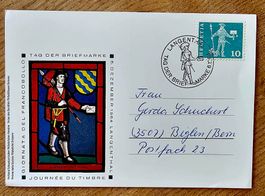 TAG DER BRIEFMARKE
6. DEZEMBER 1964 LANGENTHAL
GIORNATA DEL FRANCOBOLLO
JOURNÉE DU TIMBRE
LANGENTHAL
TAG DER BRIEFMARKE
HELVETIA
10
Frau
Gerda Schuchert
(3507) Biglen/Bern
Postfach 23